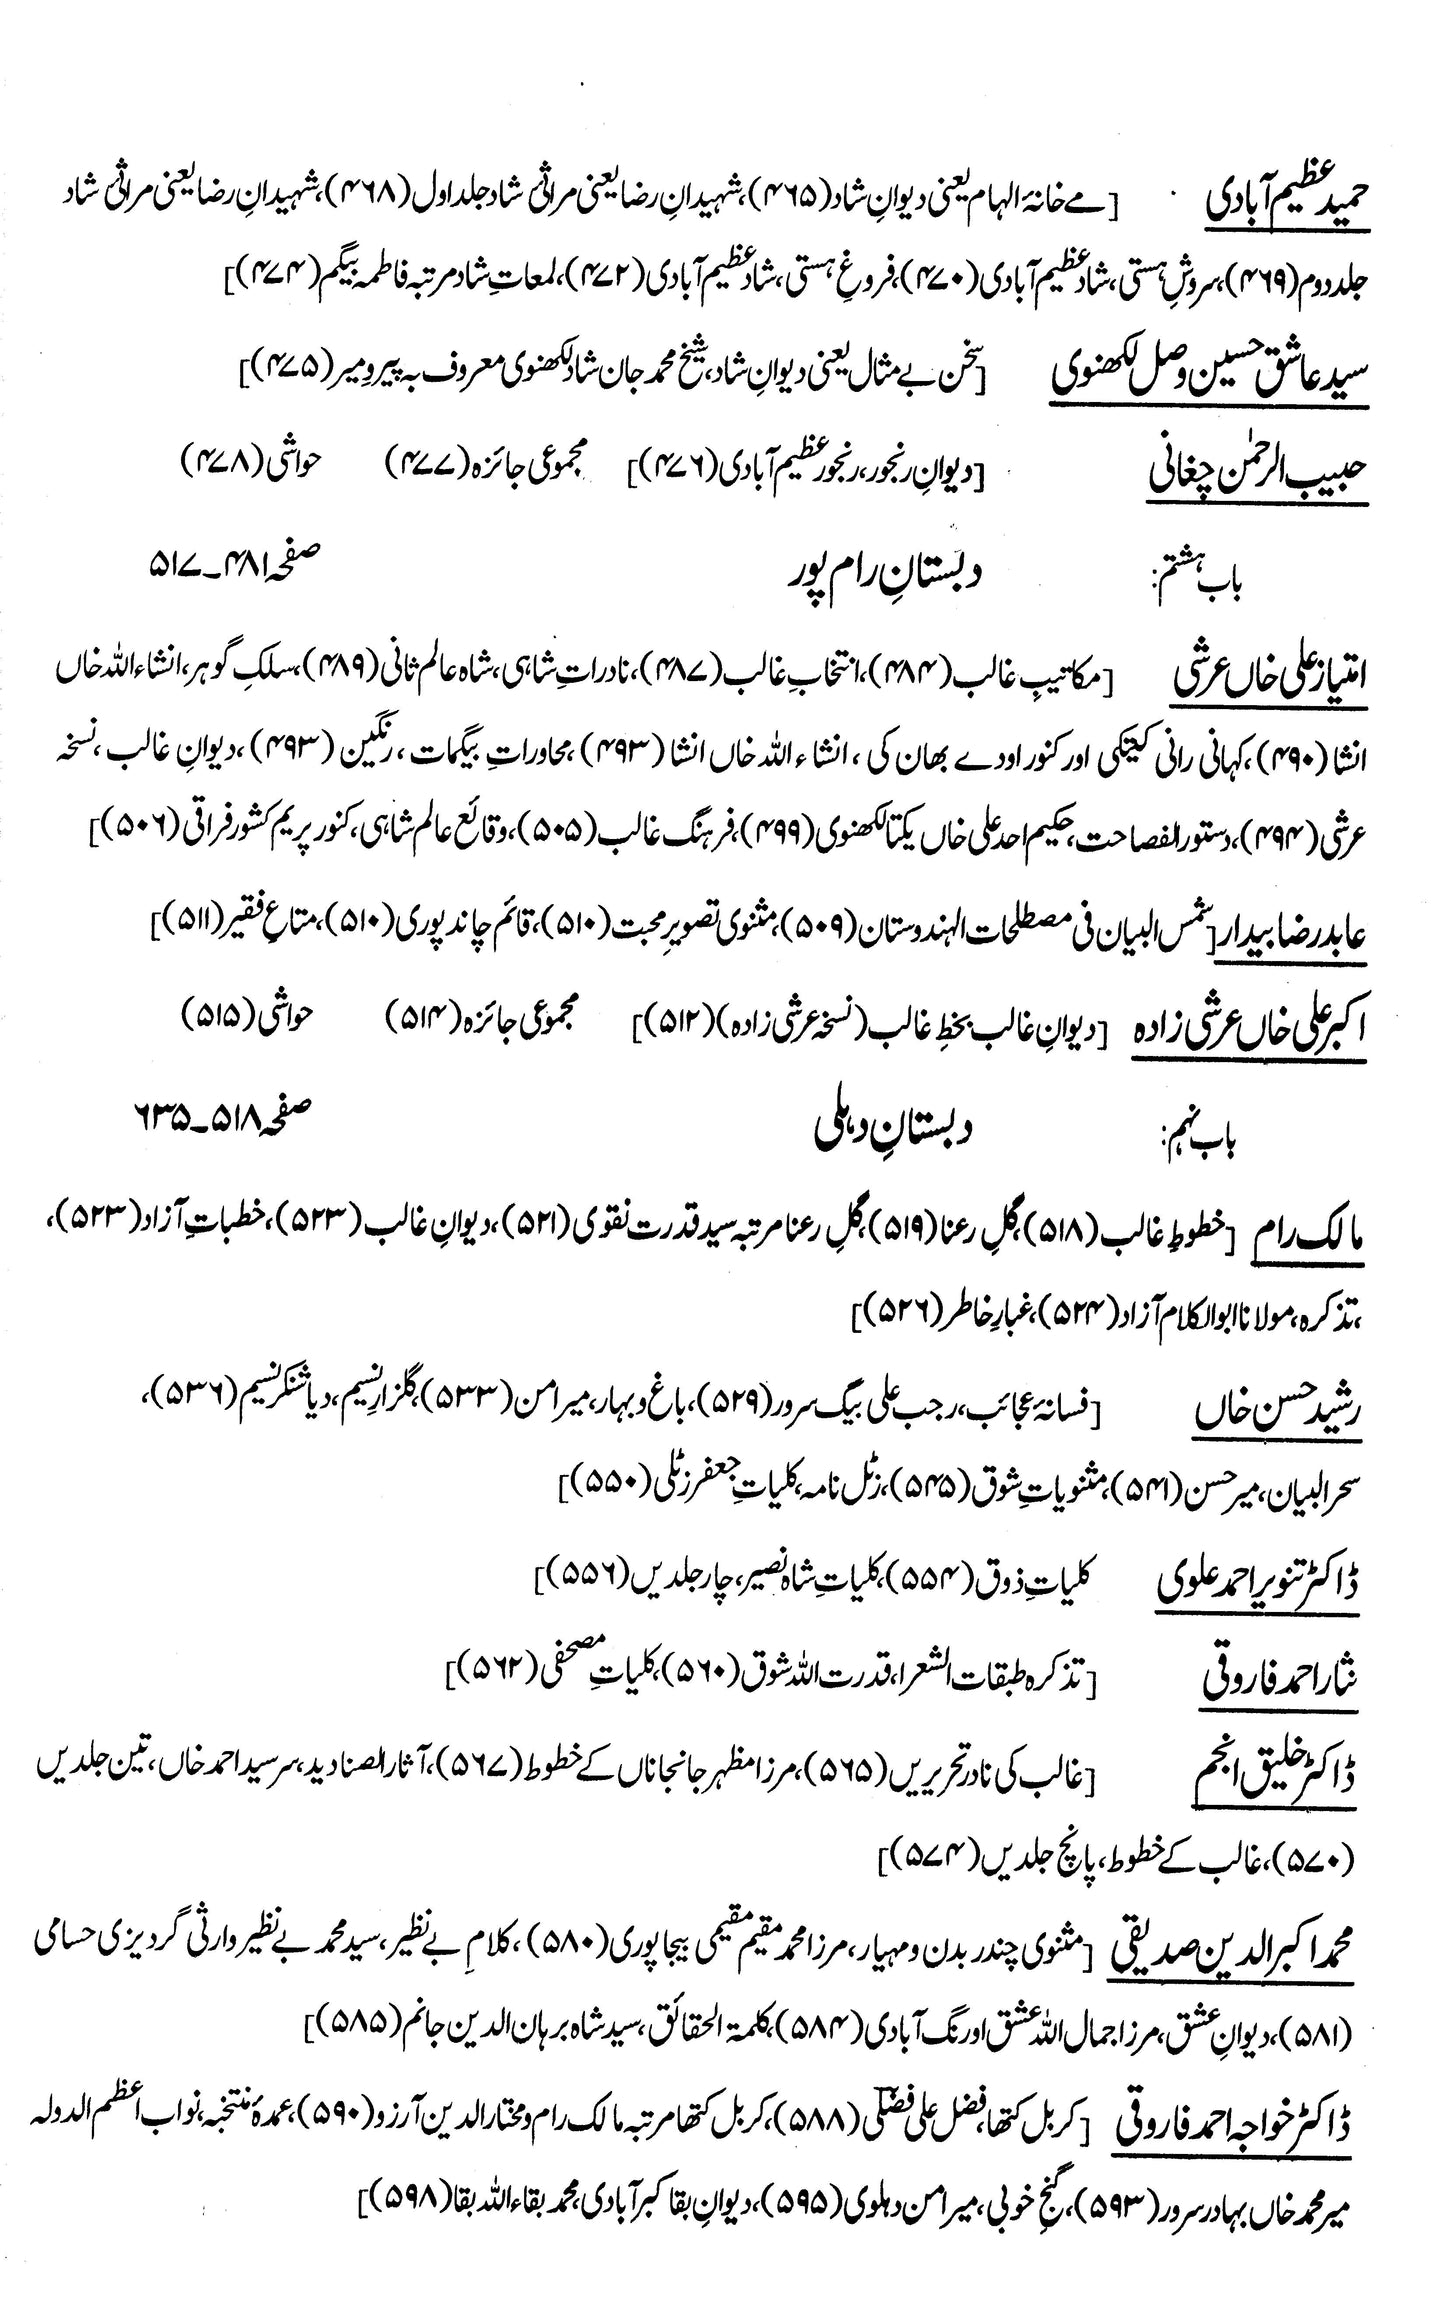 حمید عظیم آبادی [مے خانۂ الہام یعنی دیوانِ شاد (۴۶۵)، شہیدانِ رضا یعنی مراثیٔ شاد جلد اول (۴۶۸)، شہیدانِ رضا یعنی مراثیٔ شاد
جلد دوم (۴۶۹)، سروشِ ہستی، شاد عظیم آبادی (۴۷۰)، فروغِ ہستی، شاد عظیم آبادی (۴۷۲)، لمعاتِ شاد مرتبہ فاطمہ بیگم (۴۷۴)]
سید عاشق حسین وصل لکھنوی [سخن بے مثال یعنی دیوانِ شاد، شیخ محمد جان شاد لکھنوی معروف بہ پیرو میر (۴۷۵)]
حبیب الرحمٰن چغانی [دیوانِ رنجور، رنجور عظیم آبادی (۴۷۶)] مجموعی جائزہ (۴۷۷) حواشی (۴۷۸)
باب ہشتم: دبستانِ رام پور صفحہ ۴۸۱ـ۵۱۷
امتیاز علی خاں عرشی [مکاتیبِ غالب (۴۸۴)، انتخابِ غالب (۴۸۷)، نادراتِ شاہی، شاہ عالم ثانی (۴۸۹)، سلکِ گوہر، انشاء اللہ خاں
انشا (۴۹۰)، کہانی رانی کیتکی اور کنور اودے بھان کی، انشاء اللہ خاں انشا (۴۹۳)، محاوراتِ بیگمات، رنگین (۴۹۳)، دیوانِ غالب، نسخہ
عرشی (۴۹۴)، دستور الفصاحت، حکیم احد علی خاں یکتا لکھنوی (۴۹۹)، فرہنگ غالب (۵۰۵)، وقائع عالم شاہی، کنور پریم کشور فراقی (۵۰۶)]
عابد رضا بیدار [شمس البیان فی مصطلحات الہندوستان (۵۰۹)، مثنوی تصویرِ محبت (۵۱۰)، قائم چاند پوری (۵۱۰)، متاعِ فقیر (۵۱۱)]
اکبر علی خاں عرشی زادہ [دیوانِ غالب بخطِ غالب (نسخہ عرشی زادہ) (۵۱۲)] مجموعی جائزہ (۵۱۴) حواشی (۵۱۵)
باب نہم: دبستانِ دہلی صفحہ ۵۱۸ـ۶۳۵
مالک رام [خطوطِ غالب (۵۱۸)، گلِ رعنا (۵۱۹)، گلِ رعنا مرتبہ سید قدرت نقوی (۵۲۱)، دیوانِ غالب (۵۲۳)، خطباتِ آزاد (۵۲۳)،
، تذکرہ، مولانا ابوالکلام آزاد (۵۲۴)، غبارِ خاطر (۵۲۶)]
رشید حسن خاں [فسانۂ عجائب، رجب علی بیگ سرور (۵۲۹)، باغ و بہار، میر امن (۵۳۳)، گلزارِ نسیم، دیا شنکر نسیم (۵۳۶)،
سحر البیان، میر حسن (۵۴۱)، مثنویاتِ شوق (۵۴۵)، زٹل نامہ، کلیاتِ جعفر زٹلی (۵۵۰)]
ڈاکٹر تنویر احمد علوی کلیاتِ ذوق (۵۵۴)، کلیاتِ شاہ نصیر، چار جلدیں (۵۵۶)]
نثار احمد فاروقی [تذکرہ طبقات الشعرا، قدرت اللہ شوق (۵۶۰)، کلیاتِ مصحفی (۵۶۲)]
ڈاکٹر خلیق انجم [غالب کی نادر تحریریں (۵۶۵)، مرزا مظہر جانجاناں کے خطوط (۵۶۷)، آثار الصنادید، سر سید احمد خاں، تین جلدیں
(۵۷۰)، غالب کے خطوط، پانچ جلدیں (۵۷۴)]
محمد اکبر الدین صدیقی [مثنوی چندر بدن و مہیار، مرزا محمد مقیم مقیمی بیجاپوری (۵۸۰)، کلامِ بے نظیر، سید محمد بے نظیر وارثی گردیزی حسامی
(۵۸۱)، دیوانِ عشق، مرزا جمال اللہ عشق اورنگ آبادی (۵۸۴)، کلمۃ الحقائق، سید شاہ برہان الدین جانم (۵۸۵)]
ڈاکٹر خواجہ احمد فاروقی [کربل کتھا، فضل علی فضلی (۵۸۸)، کربل کتھا مرتبہ مالک رام و مختار الدین آرزو (۵۹۰)، عمدۂ منتخبہ، نواب اعظم الدولہ
میر محمد خاں بہادر سرور (۵۹۳)، گنجِ خوبی، میر امن دہلوی (۵۹۵)، دیوانِ بقا کبرآبادی، محمد بقاء اللہ بقا (۵۹۸)]